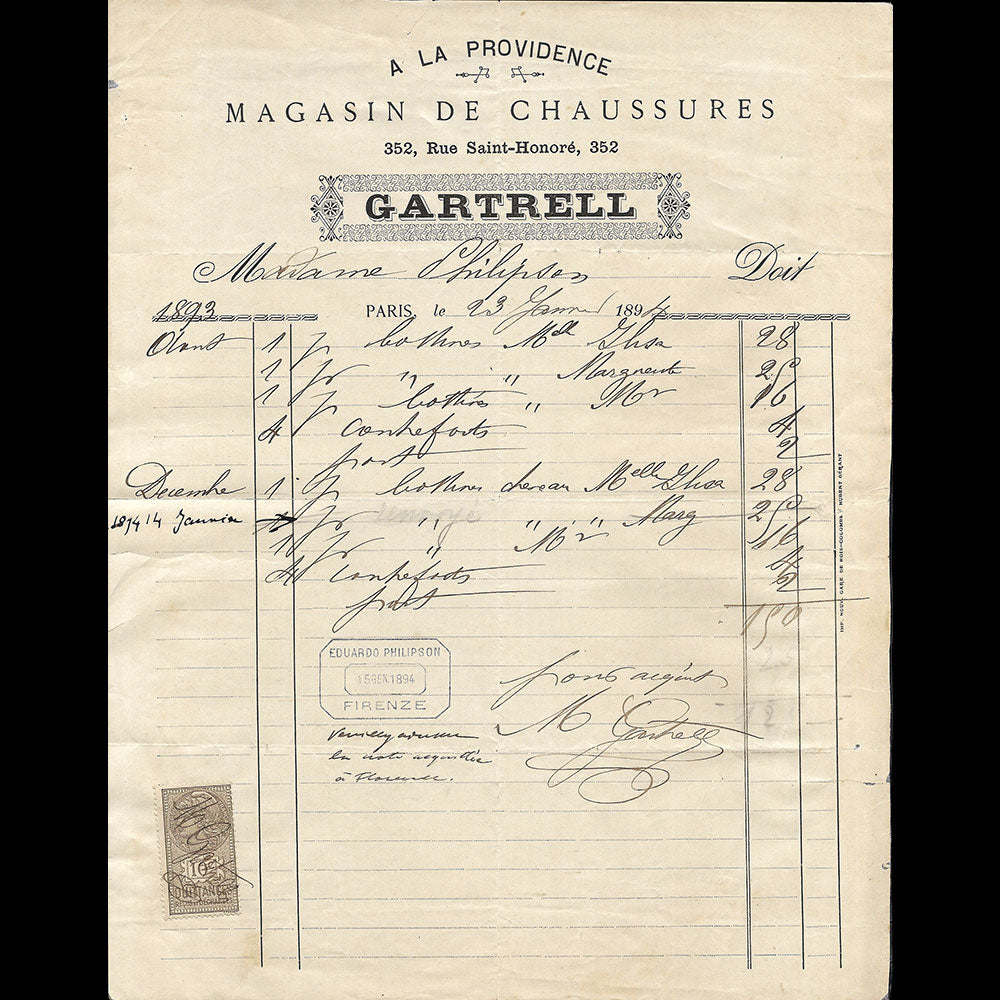 A LA PROVIDENCE
MAGASIN DE CHAUSSURES
352, Rue Saint-Honoré, 352
GARTRELL
Madame Philipson Doit
1893 PARIS, le 23 Janvier 1894
Août 1 p bottines Mlle Elisa 28
1 p " " Marguerite 25
1 p bottines " Mr 16
4 contreforts 4
port 2
Decembre 1 p bottines chevreau Mlle Elisa 28
1894 14 Janvier 1 p " " " Marg 25
1 p " Mr 16
4 contreforts 4
port 2
150
EDUARDO PHILIPSON
15 GEN. 1894
FIRENZE
pour acquit
M Gartrell
Veuillez
la note acquittée
à Florence.
10c
QUITTANCES
IMP. NOUV. GARE DE BOIS-COLOMBES HUBERT GÉRANT